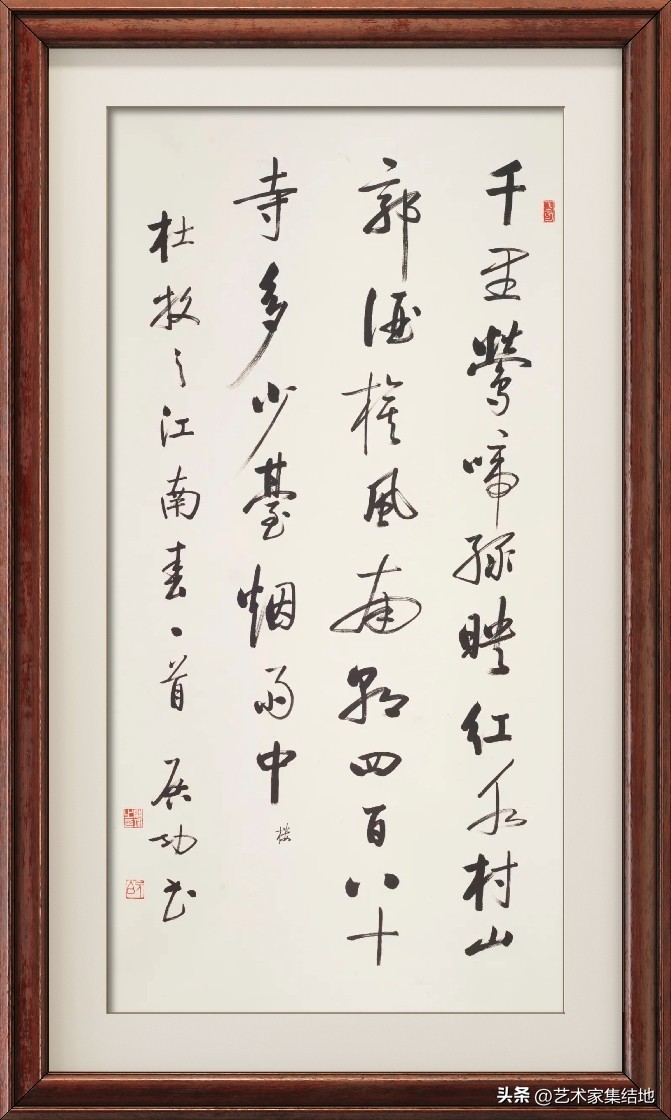 千里鶯啼綠映紅水村山
郭酒旗風南朝四百八十
寺多少臺烟雨中
樓
杜牧之江南春一首 啟功書
头条 @艺术家集结地